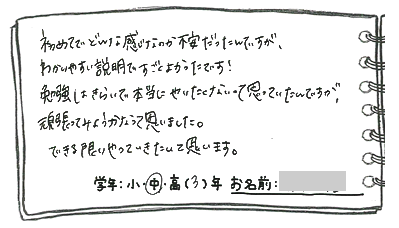 初めてでどんな感じなのか不安だったんですが、
わかりやすい説明ですごくよかったです!
勉強はきらいで本当にやりたくないって思っていたんですが、
頑張ってみようかなって思いました。
できる限りやっていきたいって思います。
学年:小・中・高(3)年 お名前: